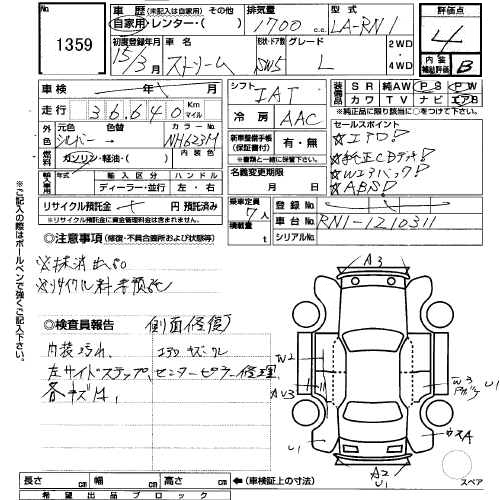 No.
1359
車歴 (未記入は自家用) その他
自家用・レンター・( )
排気量
1700 c.c.
型式
LA-RN1
評価点
4
内装補助評価 B
初度登録年月
15/3月
車名
ストリーム
形状・ドア数
SW5
グレード
L
2WD・4WD
車検 年 月
走行 36640 Km マイル
シフト
IAT
冷房
AAC
装備品
SR 純AW PS PW
カワ TV ナビ エアB
※純正品に限り該当に○をつけて下さい。
外装
元色 色替
シルバー→
カラー No.
NH623M
燃料
ガソリン・軽油・( )
内装色
新車整備手帳(保証書付)
有・無
※書類と一緒に保管して下さい。
セールスポイント
☆エアロ!
☆純正CDデッキ!
☆Wエアバック!
☆ABS!
輸入車用
年式
輸入区分
ディーラー・並行
ハンドル
左・右
名義変更期限
月 日
リサイクル預託金 〒 円 預託済み
※リサイクル預託金に資金管理料金は含まれません。
乗車定員
7人
積載量
t
登録 No.
車台 No.
RN1-1210311
シリアルNo.
※ご記入の際はボールペンで強くご記入下さい。
◎注意事項 (修復・不具合箇所および状態等)
※抹消出品
※リサイクル料未預託
◎検査員報告
側面修復
内装汚れ、
エアロキズワレ
左サイドステップ、センターピラー修理
各キズ1、
A3
W2
AV3
U1
W3
U1
A2
U1
スペア
長さ cm 幅 cm 高さ cm ←(車検証上の寸法)
希望出品ブロック